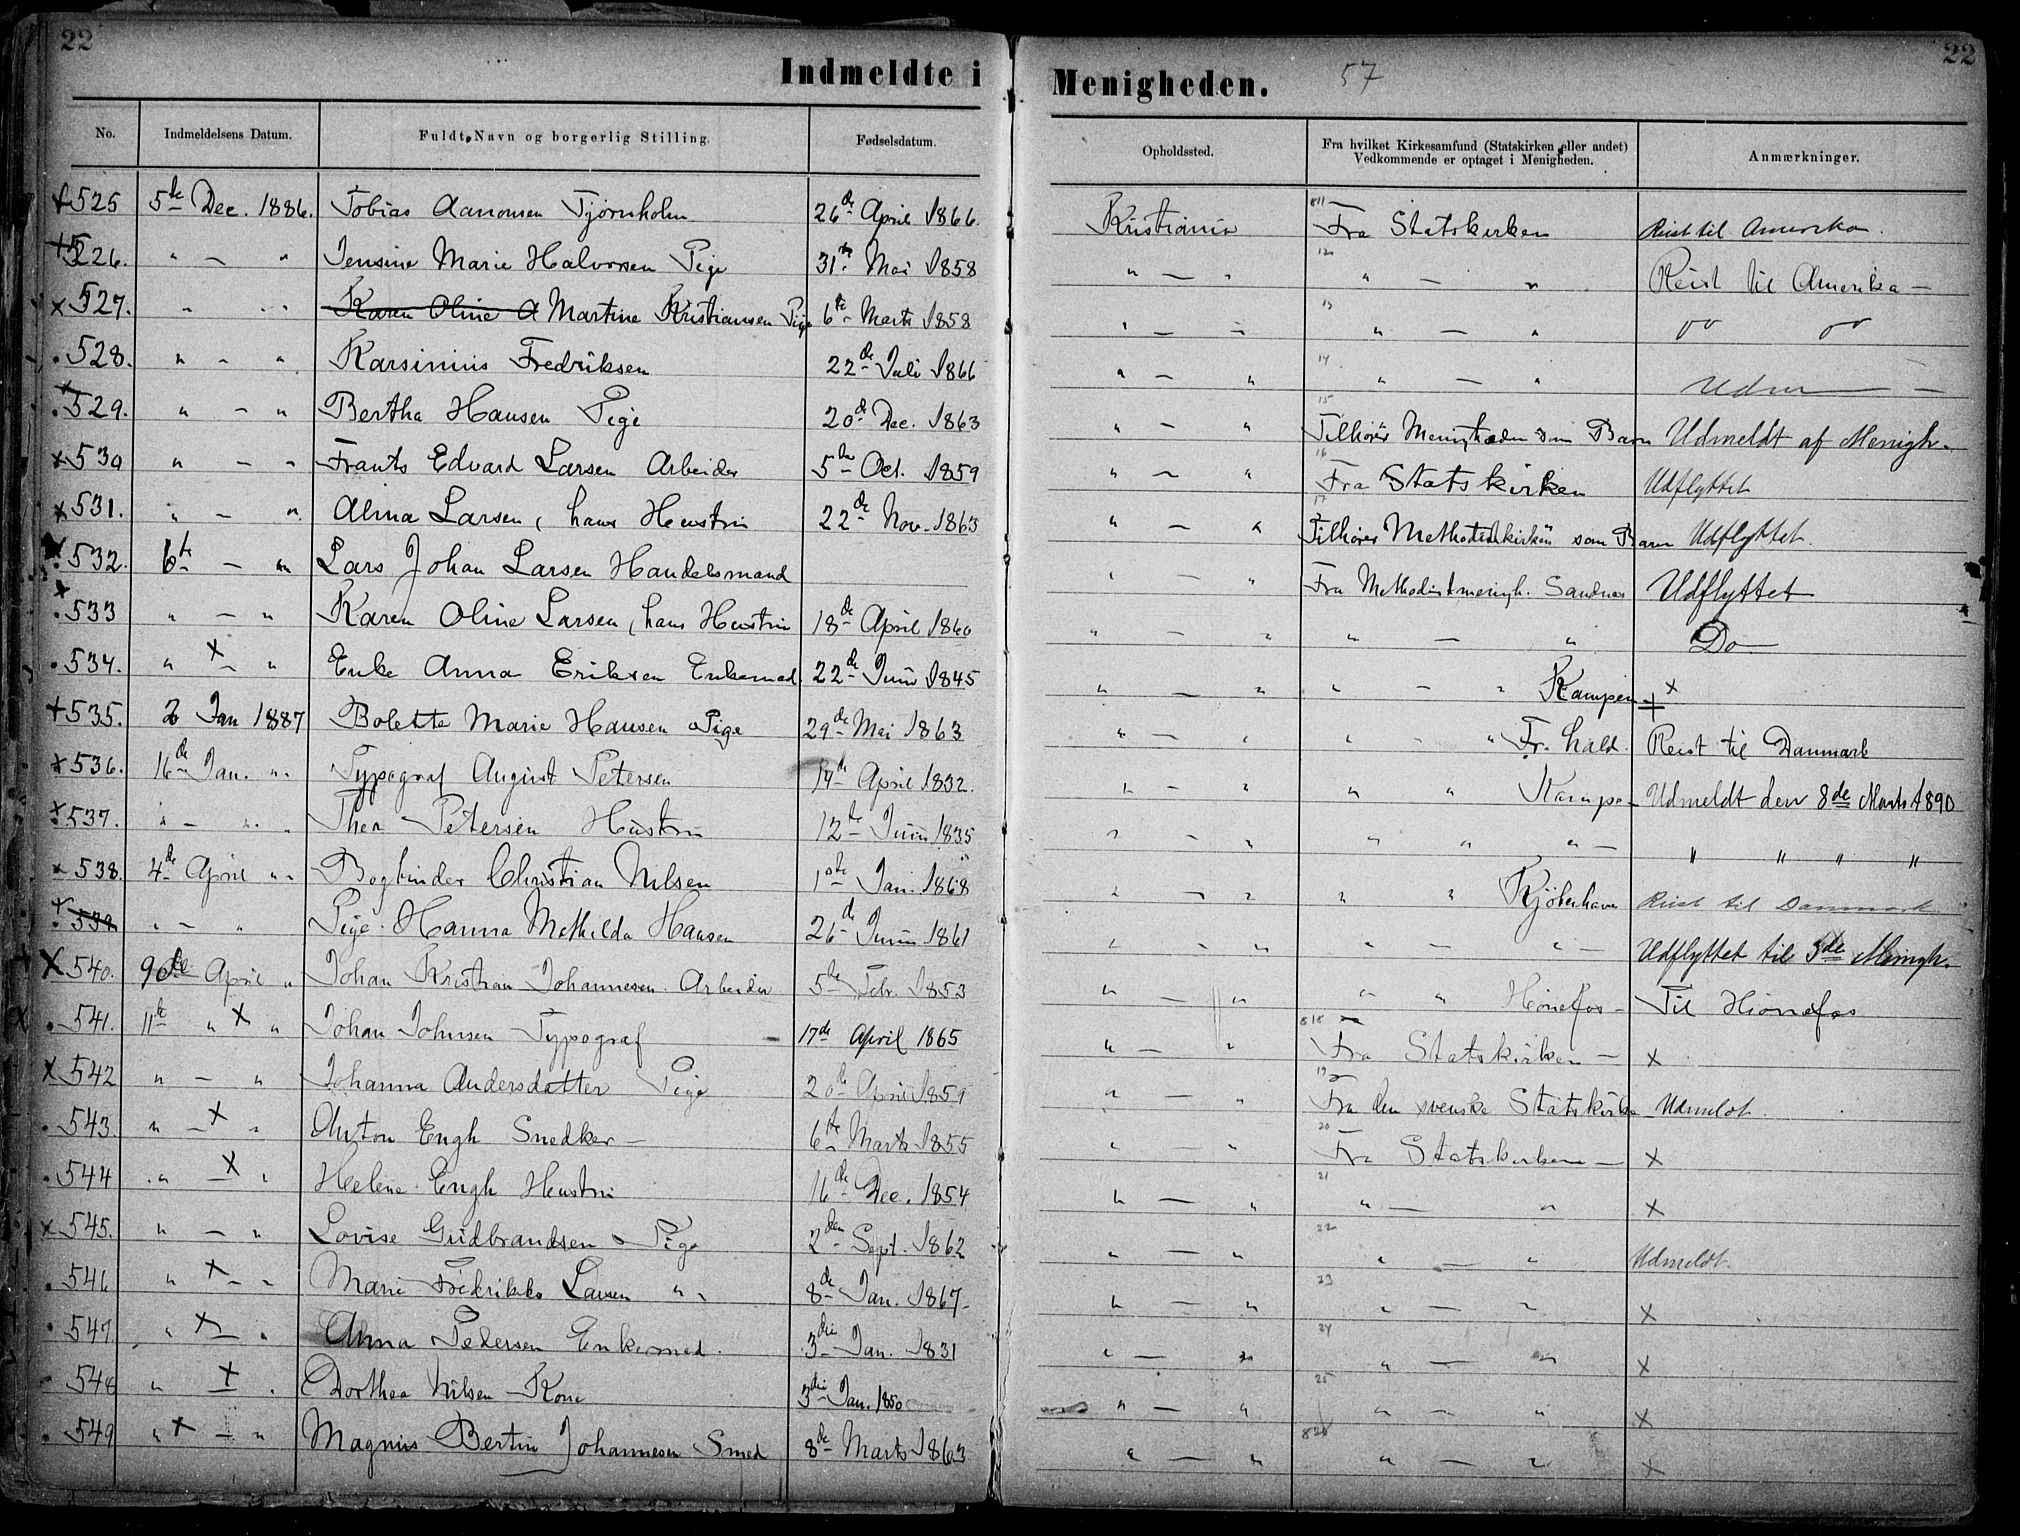 22
22
Indmeldte i Menigheden. 57
No. Indmeldelsens Datum. Fuldt Navn og borgerlig Stilling. Fødselsdatum. Opholdssted. Fra hvilket Kirkesamfund (Statskirken eller andet) Vedkommende er optaget i Menigheden. Anmærkninger.
+525 5te Dec. 1886. Tobias Aanonsen Tjørnholm 26de April 1866. Kristiania 811 Fra Statskirken Reist til Amerika.
+526. " - " Jensine Marie Halvorsen Pige 31te Mai 1858 " — " 12 " — " Reist til Amerika —
x527. " " " Karen Oline A Martine Kristiansen Pige 6te Marts 1858 " — " 13 " — " do do
.528. " - " Karsinius Fredriksen 22de Juli 1866 " — " 14 " — "
x529. " - " Bertha Hansen Pige 20de Dec. 1863 " — " 15 Tilhörer Menigheden som Barn Udmeldt af Menigh.
x530 " - " Frants Edvard Larsen Arbeider 5te Oct. 1859 " — " 16 Fra Statskirken Udflyttet
x531. " - " Alma Larsen, hans Hustru 22de Nov. 1863 " - " 17 Tilhörer Methodistkirken som Barn Udflyttet.
x532. 6te - " Lars Johan Larsen Handelsmand " - " Fra Methodistmenigh. Sandnes Udflyttet
x533 " - " Karen Oline Larsen, hans Hustru 18de April 1860 " — " " — " Do
.534. " x " Enke Anna Eriksen Enkemad. 22de Juni 1845 " — " " - " Kampen x
+535. 2 Jan 1887 Bolette Marie Hansen Pige 29de Mai 1863 " — " " - " Fr. hald. Reist til Danmark
x536. 16de Jan. " Typograf August Petersen 14de April 1832. " - " " " Kampen Udmeldt den 8de Marts 1890
x537. " - " Thea Petersen Hustru 12te Juni 1835 " - " " " " - " " " "
x538. 4de April " Bogbinder Christian Nilsen 1ste Jan. 1868 " - " " " Kjöbenhavn Reist til Danmark
+539 " - " Pige Hanna Mathilda Hansen 26de Juni 1861 " - " " - " - Udflyttet til 3de Menigh.
X540. April " Johan Kristian Johannesen. Arbeider 5te Febr. 1853 " — " " " Hönefos - Til Hönefos
.541. 11te " x " Johan Johnsen Typograf 17de April 1865 " — " 818 Fra Statskirken — x
x542 " - " Johanna Andersdatter Pige 20de April 1859 " - " 19 Fra den svenske Statskirke - Udmeldt.
.543. " x " Anton Engh Snedker — 6te Marts 1855 " - " 20 Fra Statskirken — x
.544 " x " Helene Engh Hustru 16de Dec. 1854 " — " 21 " — " x
x545. " - " Lovise Gudbrandsen Pige 2den Sept. 1862 " — " 22 " — " Udmeldt.
.546 " x " Marie Fredrikke Larsen " " 8de Jan. 1867. " — " 23 " — " x
.547 " x " Anna Pedersen Enkemad. 3die Jan. 1831 " — " 24 " — " x
548 " x " Dorthea Nilsen Kone 3die Jan. 1850 " - " 25 " - " x
.549 " x " Magnus Bertin Johannesen Smed 8de Marts 1863 " — " 826 " - " x